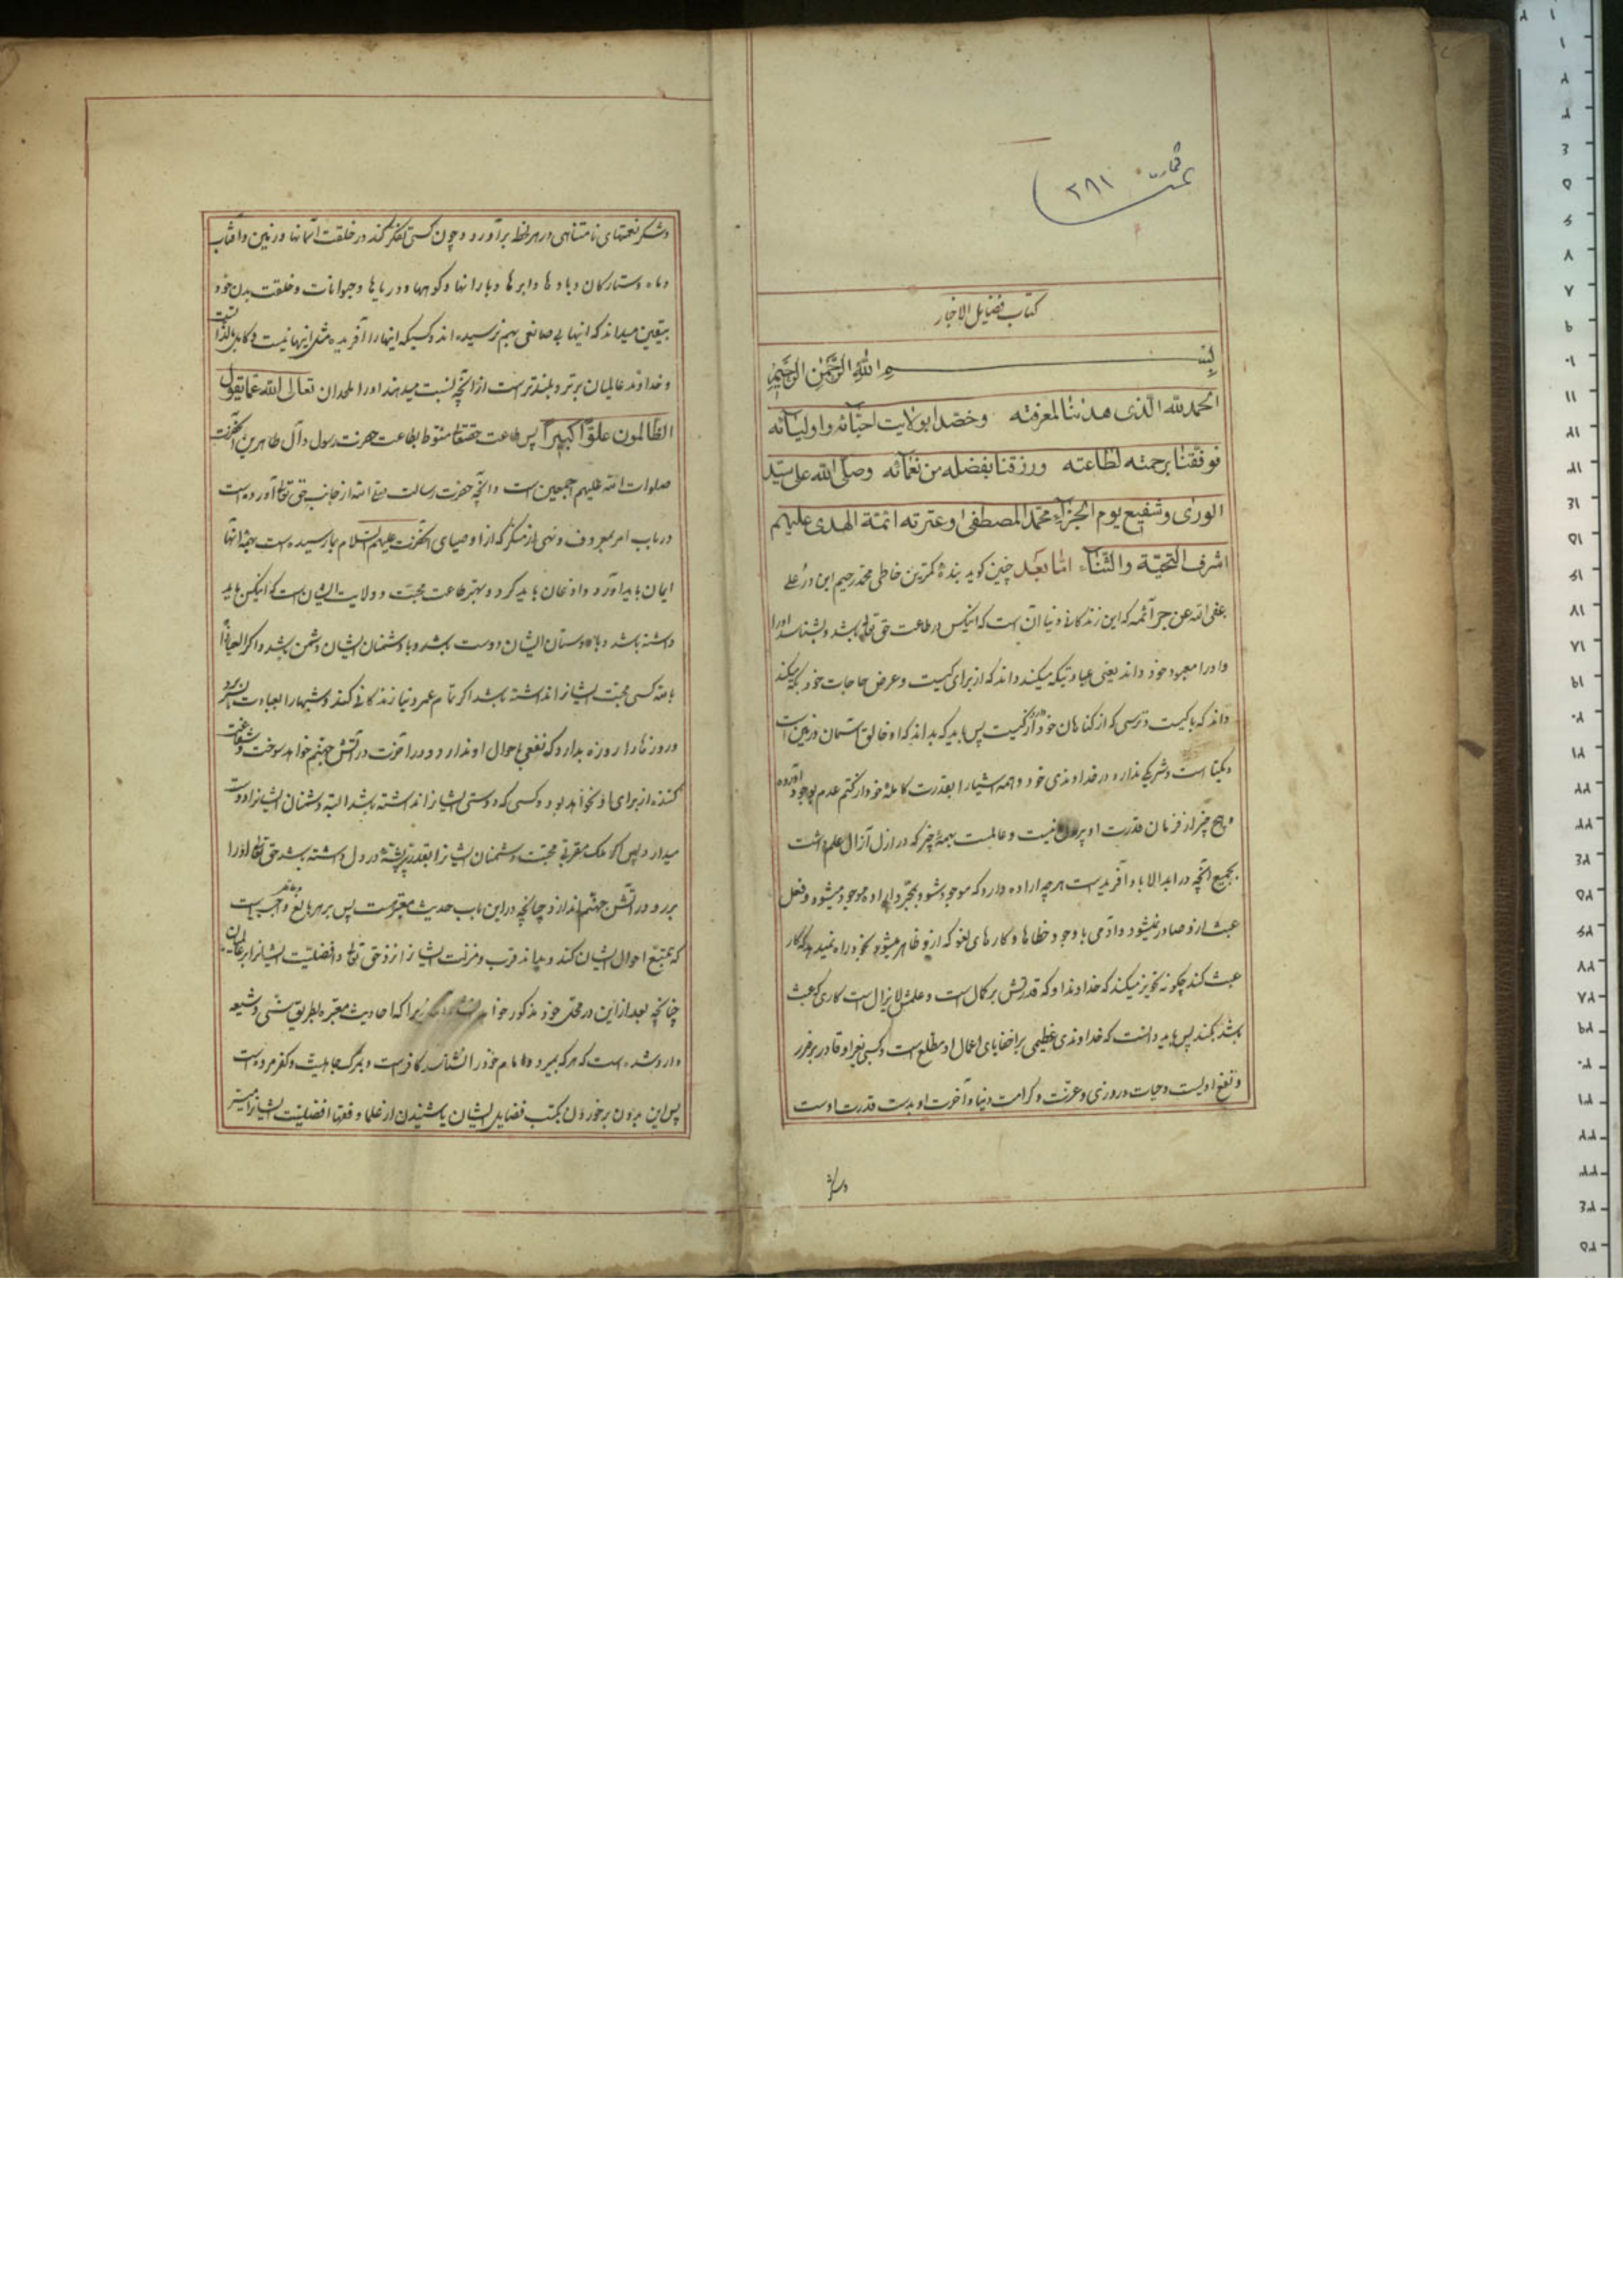 ۲۸۱
کتاب فضایل الاخبار
بسم الله الرحمن الرحیم
الحمد لله الذی هدینا لمعرفته وخصنا بولایت احبائه واولیائه
فوفقنا برحمته لطاعته ورزقنا بفضله من نعمائه وصلی الله علی سید
الوری وشفیع یوم الجزاء محمد المصطفی وعترته ائمة الهدی علیهم
اشرف التحیة والثناء اما بعد چنین کوید بندهٔ کمترین خاطی محمد رحیم ابن
عفی الله عن جرائمه که این زندکانی دنیا آن است که آنکس در طاعت حق تعالی باشد وبشناسد اورا
واورا معبود خود داند یعنی عبادتیکه میکند داند که از برای کیست وعرض حاجات خود بکه میکند
داند که با کیست وترسی که از کناهان خود دارد از کیست پس باید که بداند که او خالق آسمان وزمین است
ویکتا است وشریکی ندارد در خداوندی خود وهمه اشیارا بقدرت کاملهٔ خود از کتم عدم بوجود آورده
وهیچ چیز از فرمان قدرت او بیرون نیست وعالمست بهمهٔ چیز که در ازل آزال علم داشت
بجمیع آنچه در ابد الاباد آفریدست هر چه اراده دارد که موجود شود بمجرد اراده موجود میشود وفعل
عبث ازو صادر نمیشود وآدمی با وجود خطاها وکارهای لغو که ازو ظاهر میشود بخود راه نمیدهد که کار
عبث کند چکونه تجویز میکند که خداوندا وکه قدرتش بر کمال است وعلمش لایزال است کاری که عبث
باشد بکند پس باید دانست که خداوندی عظیمی بر اخفایای اعمال او مطلع است وکسی بغیر او قادر بر ضرر
ونفع او نیست وحیات وروزی وعزت وکرامت دنیا وآخرت او بدست قدرت اوست
وشکر
وشکر نعمتهای نامتناهی در هر لحظه برآورد وچون کسی تفکر کند در خلقت آسمانها وزمین وآفتاب
وماه وستارکان وبادها وابرها وبارانها وکوهها ودریاها وحیوانات وخلقت بدن خود
بیقین میداند که اینها بی صانعی بهم نرسیده اند وکسیکه اینهارا آفریده مثل اینها نیست وکامل بالذات
وخداوند عالمیان برتر وبلندتر است از آنچه نسبت میدهند اورا ملحدان تعالی الله عما یقول
الظالمون علوا کبیرا پس طاعت حقتعالی منوط بطاعت حضرت رسول وآل طاهرین آنحضرت
صلوات الله علیهم اجمعین است وآنچه حضرت رسالت صلی الله از جانب حق تعالی آورده است
در باب امر بمعروف ونهی از منکر که از اوصیای آنحضرت علیهم السلام بما رسیده است بهمه آنها
ایمان باید آورد واذعان باید کرد وبهتر طاعت محبت وولایت ایشان است که آنکس باید
داشته باشد وبا دوستان ایشان دوست باشد وبا دشمنان ایشان دشمن باشد واکر العیاذ
بالله کسی محبت ایشانرا نداشته باشد اکر تمام عمر دنیا زندکانی کند وشبهارا بعبادت بسر برد
وروزهارا روزه بدارد که نفعی باحوال او ندارد ودر آخرت در آتش جهنم خواهد سوخت وشفاعت
کننده از برای او نخواهد بود وکسی که دوستی ایشانرا نداشته باشد البته دشمنان ایشانرا دوست
میدارد پس اکر ملک مقربی محبت دشمنان ایشانرا بقدر پر پشهٔ در دل داشته باشد حق تعالی اورا
برو در آتش جهنم اندازد چنانچه در این باب حدیث معتبر است پس بر هر بالغ وعاقل واجب است
که تتبع احوال ایشان کند وبداند قرب ومنزلت ایشانرا نزد حق تعالی وافضلیت ایشانرا بر عالمیان
چنانچه بعد ازین در محل خود مذکور خواهد زیرا که احادیث معتبره بطریق سنی وشیعه
وارد شده است که هر که بمیرد وامام خود را نشناسد کافر است وبمرک جاهلیت وکفر مرده است
پس این بدون برخوردن بکتب فضایل ایشان یا شنیدن از علما وفقها افضلیت ایشانرا میسر